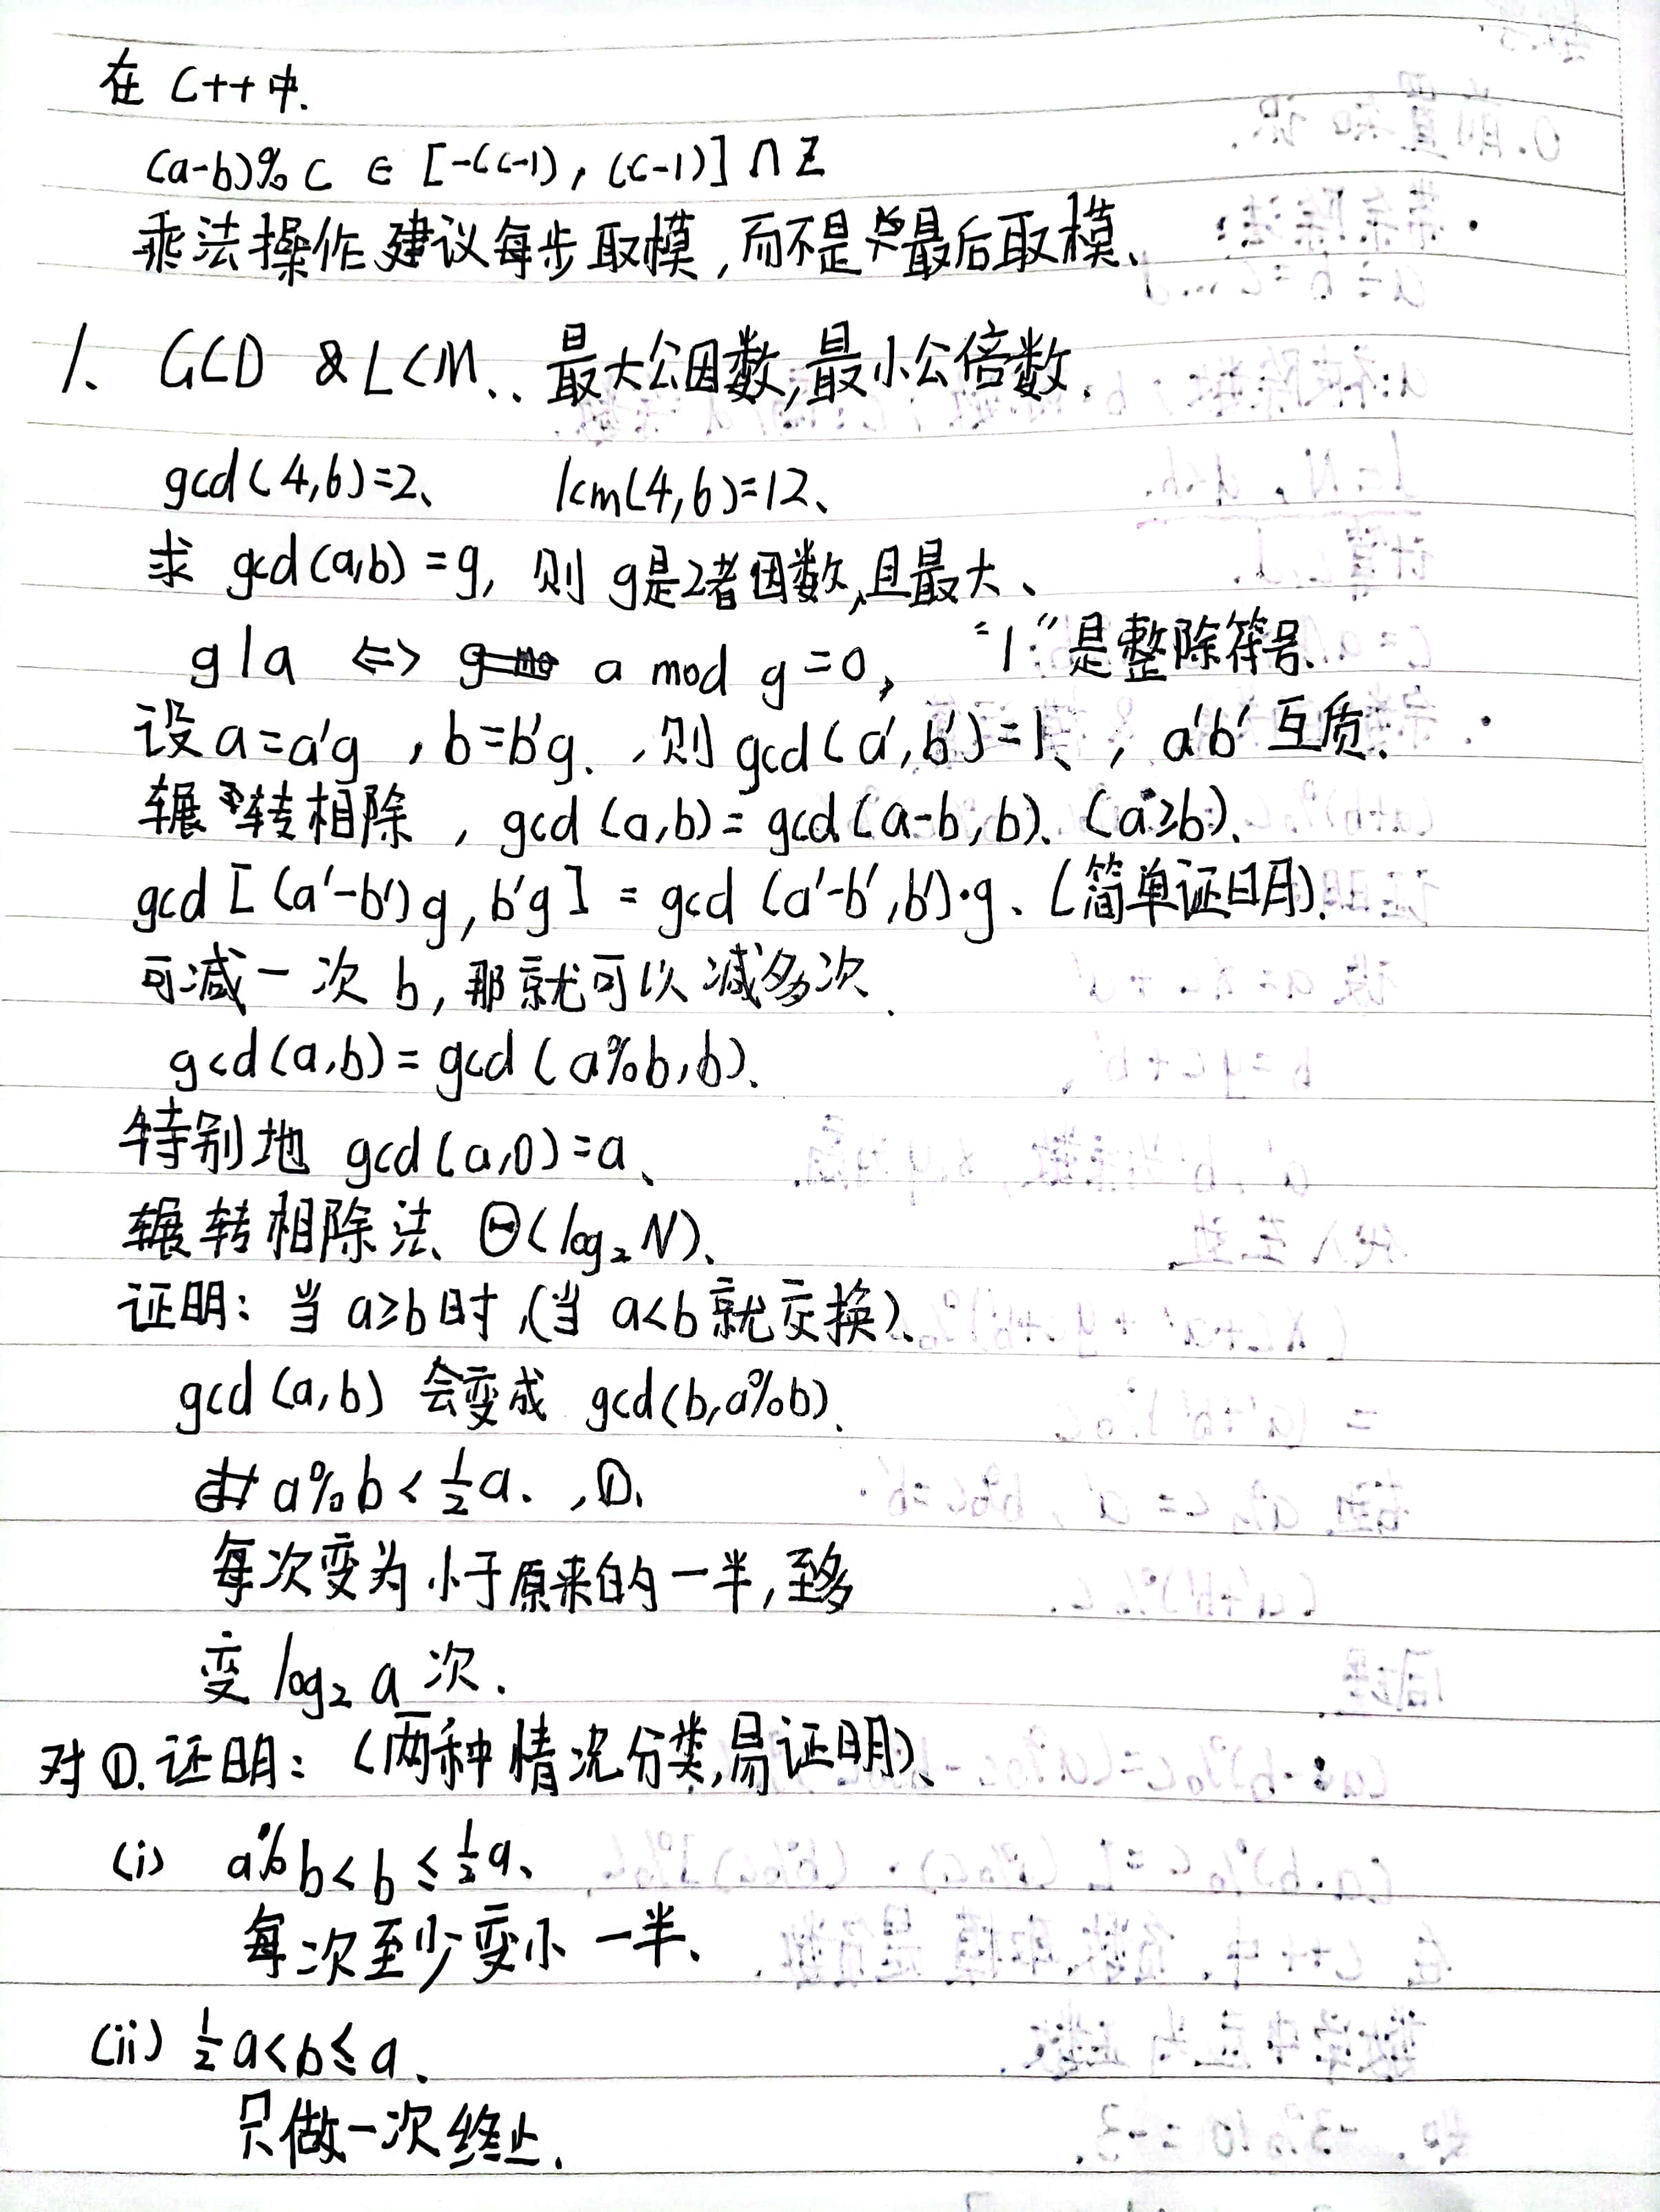 在 C++中.
(a-b)%c ∈ [-(c-1), (c-1)]∩Z
乘法操作建议每步取模,而不是最后取模、
1、 GCD & LCM、. 最大公因数,最小公倍数.
gcd(4,6)=2、 lcm(4,6)=12、
求 gcd(a,b)=g, 则 g是2者因数,且最大、
g|a ⇔ a mod g=0, “|”是整除符号.
设a=a'g ,b=b'g. ,则 gcd(a',b')=1、, a'b'互质.
辗转相除 , gcd(a,b)=gcd(a-b,b)、(a≥b).
gcd[(a'-b')g,b'g] = gcd(a'-b',b')·g、(简单证明).
可减一次 b,那就可以减多次.
gcd(a,b)=gcd(a%b,b).
特别地 gcd(a,0)=a、
辗转相除法、Θ(log₂N)、
证明: 当 a≥b时,(当 a<b就交换)、
gcd(a,b) 会变成 gcd(b,a%b).
a%b<½a. ,①.
每次变为小于原来的一半,至多
变 log₂a 次.
对①.证明:(两种情况分类,易证明)、
(i) a%b<b≤½a、
每次至少变小一半、
(ii) ½a<b≤a、
只做一次终止.